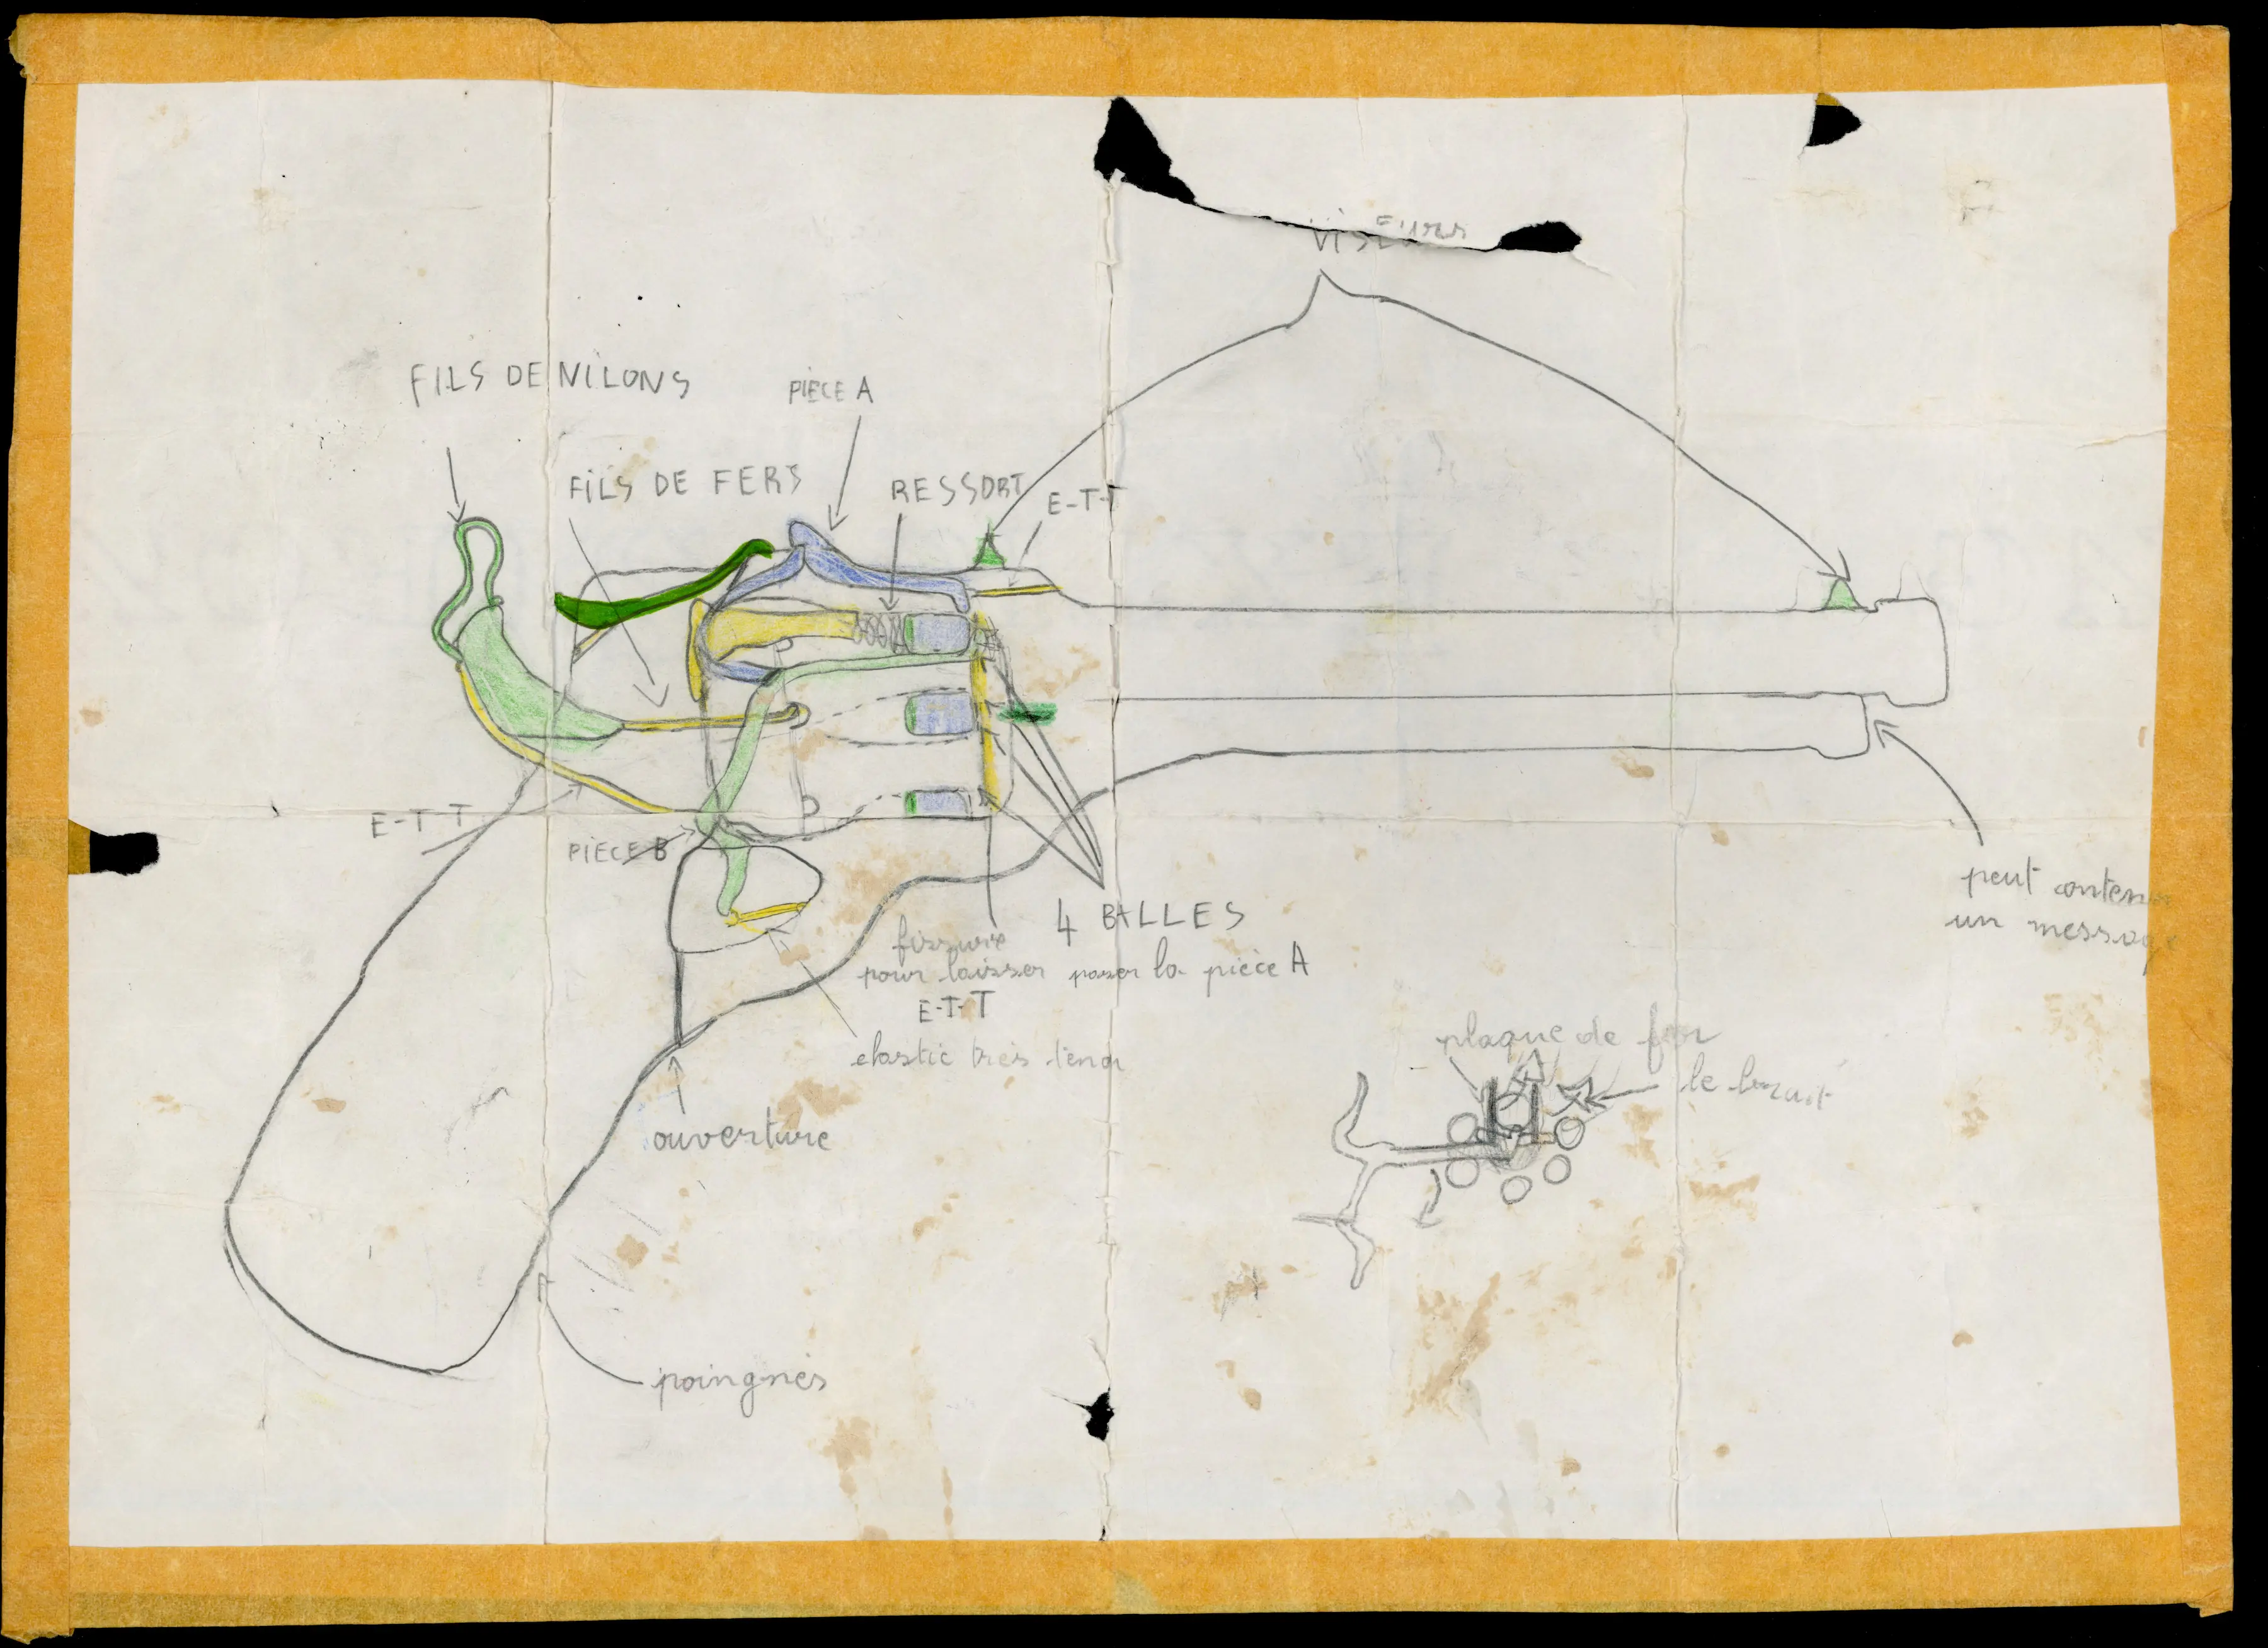 visEurs
FILS DE NiLONS
PIÈCE A
FiLS DE FERS
RESSORT
E-T-T
E-T-T
PIÈCE B
4 BALLES
fissure
pour laisser passer la pièce A
E-T-T
elastic très tendu
ouverture
poingnés
peut contenir
un message
plaque de fer
le bruit